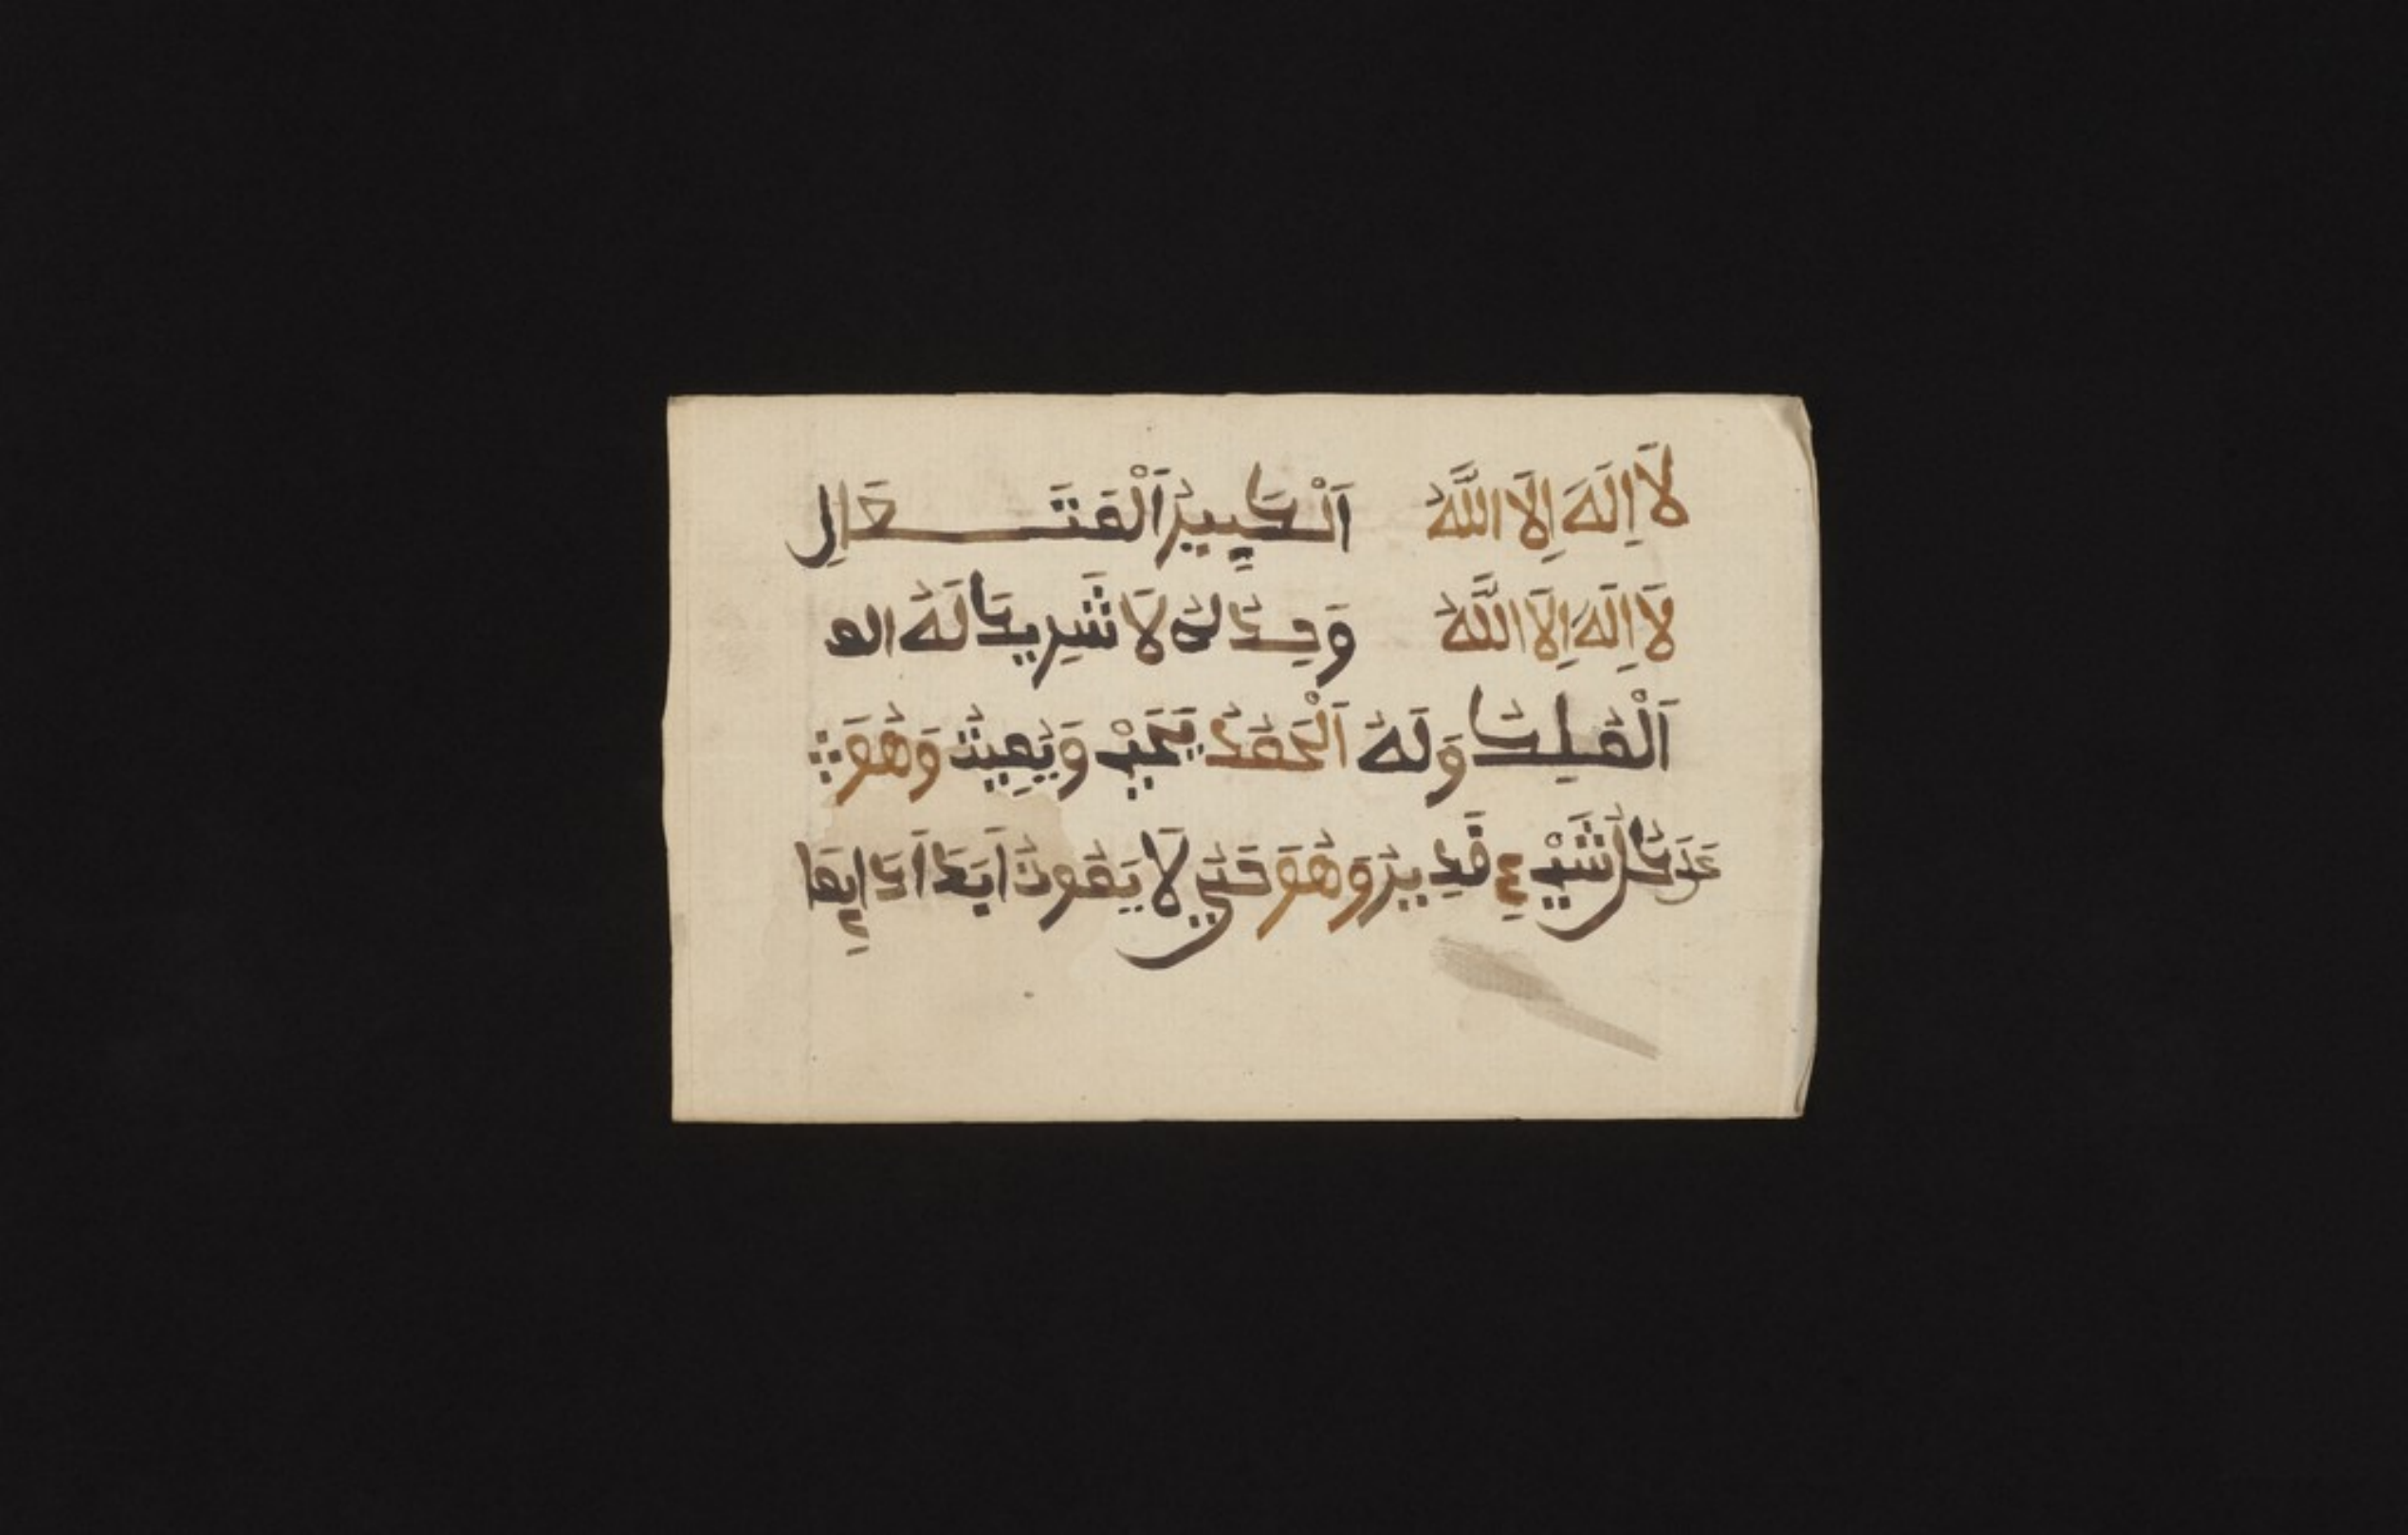 لَا اِلَهَ اِلَا اللَّهُ اَلْكَبِيرُ اَلْمُتَعَالِ
لَا اِلَهَ اِلَا اللَّهُ وَحِدُهُ لَا شَرِيكَ لَهُ الم
اَلْمُلِكُ وَلَهُ اَلْحَمْدُ يُحْيِيْ وَيُمِيتُ وَهُوَ
عَلَ كُلِّ شَيْءٍ قَدِيرُ وَهُوَ حَيُّ لَا يَمُوتُ اَبَدَا اَدَايِمَا